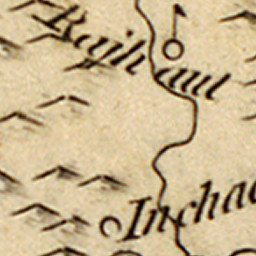 Rajhaut
Inchac